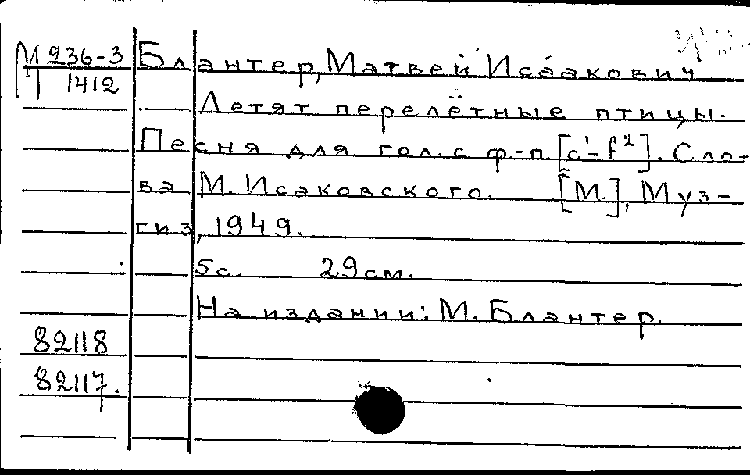 М 236-3 Блантер, Матвей Исаакович
1412 Летят перелётные птицы.
Песня для гол. с ф.-п. [c¹-f²]. Сло-
ва М. Исаковского. [М.], Муз-
гиз, 1949.
5 с. 29 см.
На издании: М. Блантер.
82118
82117.